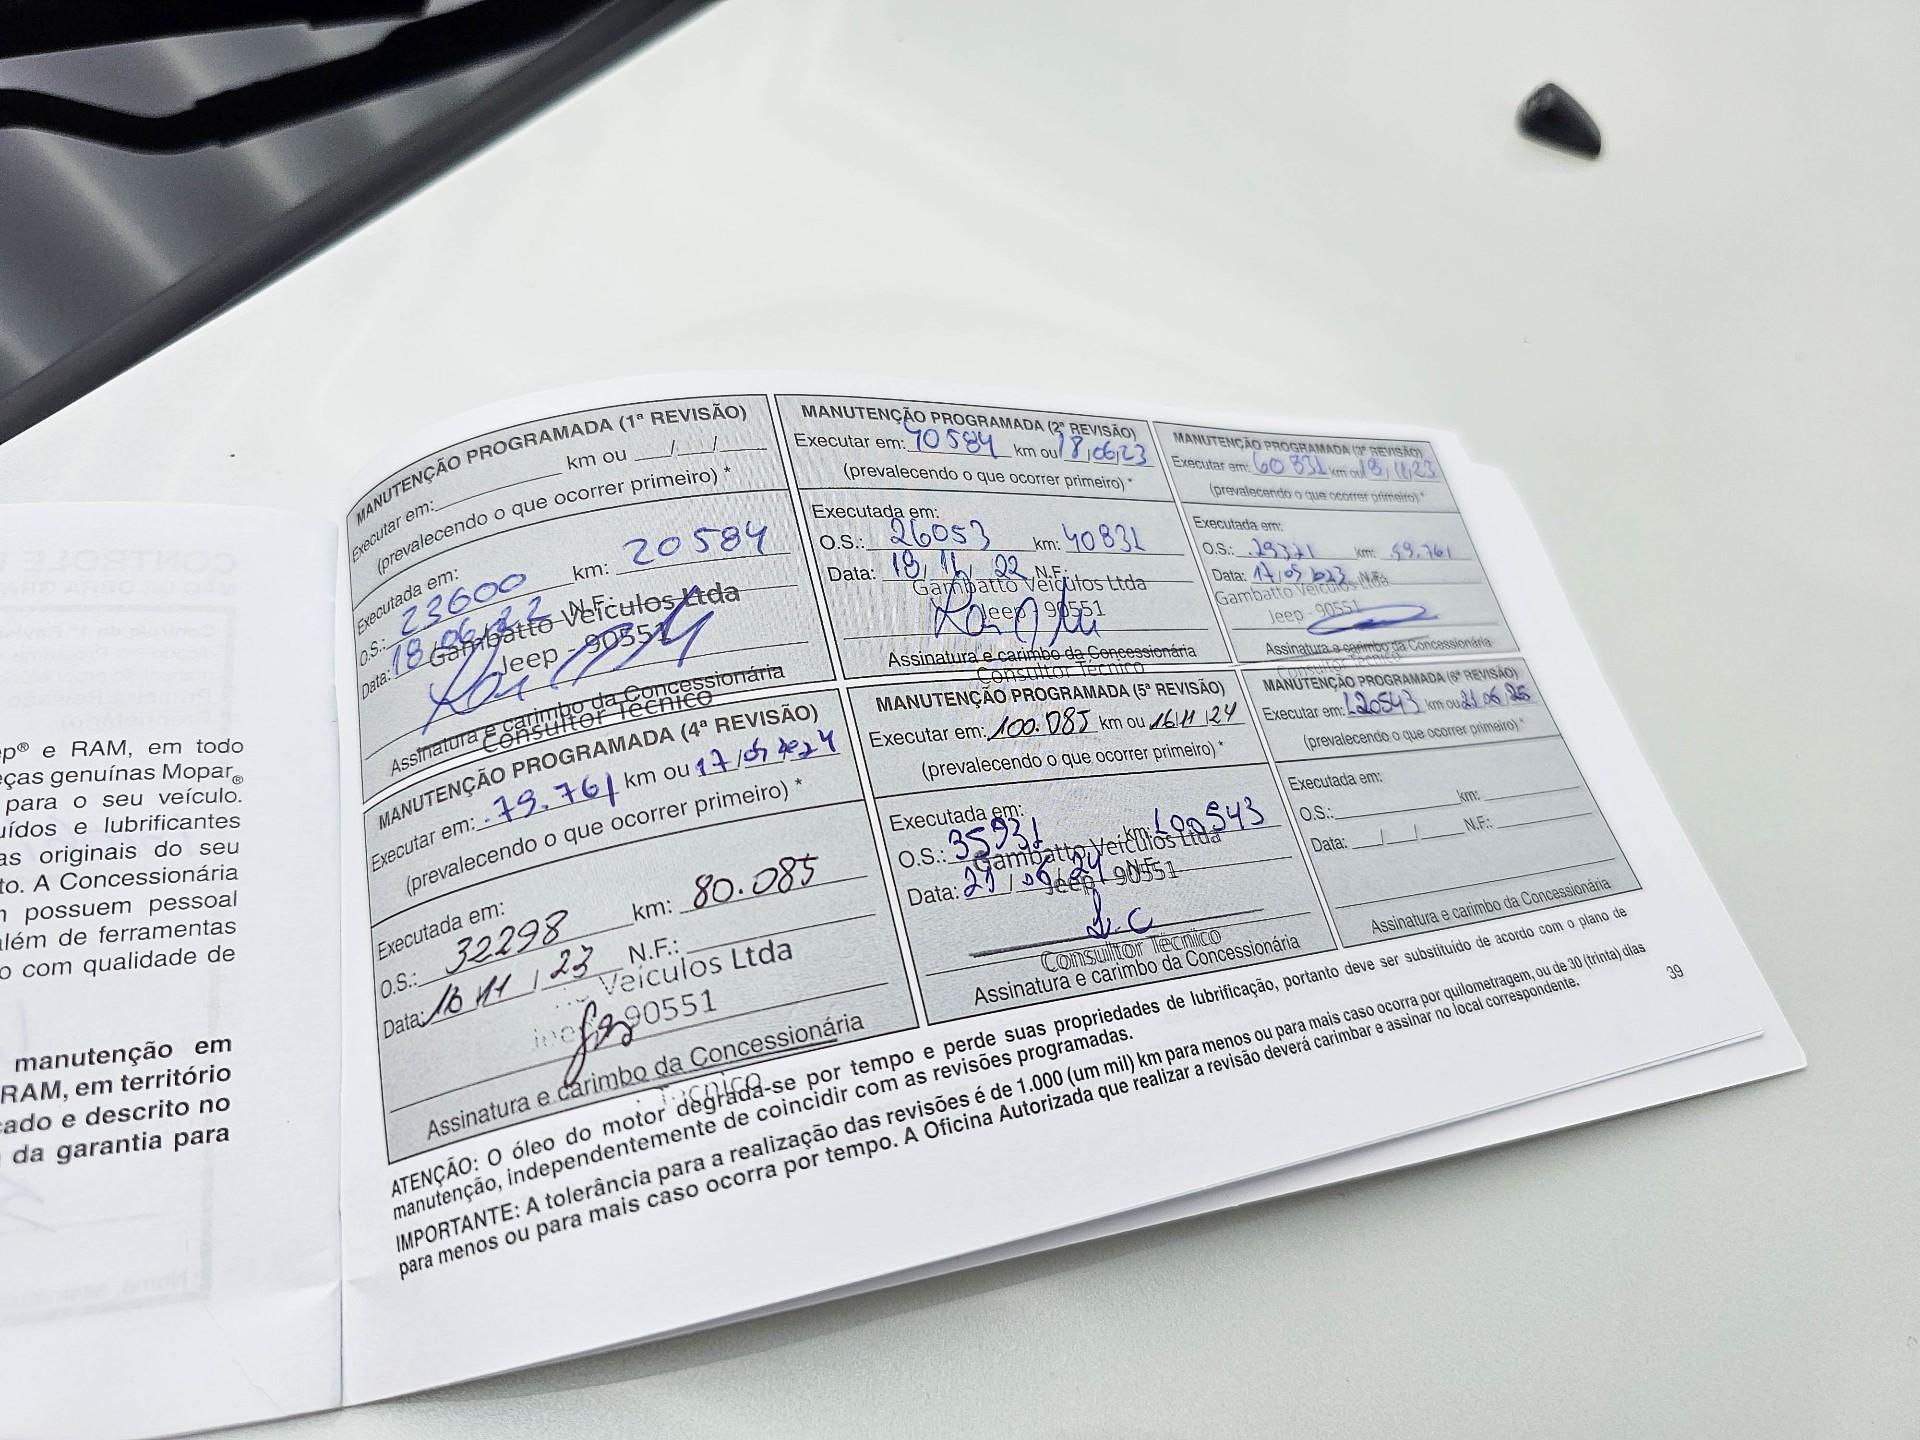 p® e RAM, em todo
eças genuínas Mopar®
para o seu veículo.
uídos e lubrificantes
as originais do seu
to. A Concessionária
possuem pessoal
além de ferramentas
o com qualidade de
manutenção em
RAM, em território
cado e descrito no
da garantia para
MANUTENÇÃO PROGRAMADA (1ª REVISÃO)
Executar em: km ou / /
(prevalecendo o que ocorrer primeiro) *
Executada em:
O.S.: 23600 km: 20584
Data: 18/06/22 N.F.:
Gambatto Veículos Ltda
Jeep - 90551
Assinatura e carimbo da Concessionária
Consultor Técnico
MANUTENÇÃO PROGRAMADA (2ª REVISÃO)
Executar em: 40584 km ou 18/06/23
(prevalecendo o que ocorrer primeiro) *
Executada em:
O.S.: 26053 km: 40831
Data: 18/11/22 N.F.:
Gambatto Veículos Ltda
Jeep - 90551
Assinatura e carimbo da Concessionária
Consultor Técnico
MANUTENÇÃO PROGRAMADA (3ª REVISÃO)
Executar em: 60831 km ou 18/11/23
(prevalecendo o que ocorrer primeiro) *
Executada em:
O.S.: 29321 km: 59.761
Data: 17/05/2023 N.F.:
Gambatto Veículos Ltda
Jeep - 90551
Assinatura e carimbo da Concessionária
Consultor Técnico
MANUTENÇÃO PROGRAMADA (4ª REVISÃO)
Executar em: 79.761 km ou 17/05/2024
(prevalecendo o que ocorrer primeiro) *
Executada em:
O.S.: 32298 km: 80.085
Data: 16/11/23 N.F.:
Veículos Ltda
90551
Assinatura e carimbo da Concessionária
Técnico
MANUTENÇÃO PROGRAMADA (5ª REVISÃO)
Executar em: 100.085 km ou 16/11/24
(prevalecendo o que ocorrer primeiro) *
Executada em:
O.S.: 35931 km: 100543
Data: 21/06/24 N.F.:
Gambatto Veículos Ltda
Jeep - 90551
Consultor Técnico
Assinatura e carimbo da Concessionária
MANUTENÇÃO PROGRAMADA (6ª REVISÃO)
Executar em: 120543 km ou 21/06/25
(prevalecendo o que ocorrer primeiro) *
Executada em:
O.S.: km:
Data: / / N.F.:
Assinatura e carimbo da Concessionária
ATENÇÃO: O óleo do motor degrada-se por tempo e perde suas propriedades de lubrificação, portanto deve ser substituído de acordo com o plano de
manutenção, independentemente de coincidir com as revisões programadas.
IMPORTANTE: A tolerância para a realização das revisões é de 1.000 (um mil) km para menos ou para mais caso ocorra por quilometragem, ou de 30 (trinta) dias
para menos ou para mais caso ocorra por tempo. A Oficina Autorizada que realizar a revisão deverá carimbar e assinar no local correspondente.
39